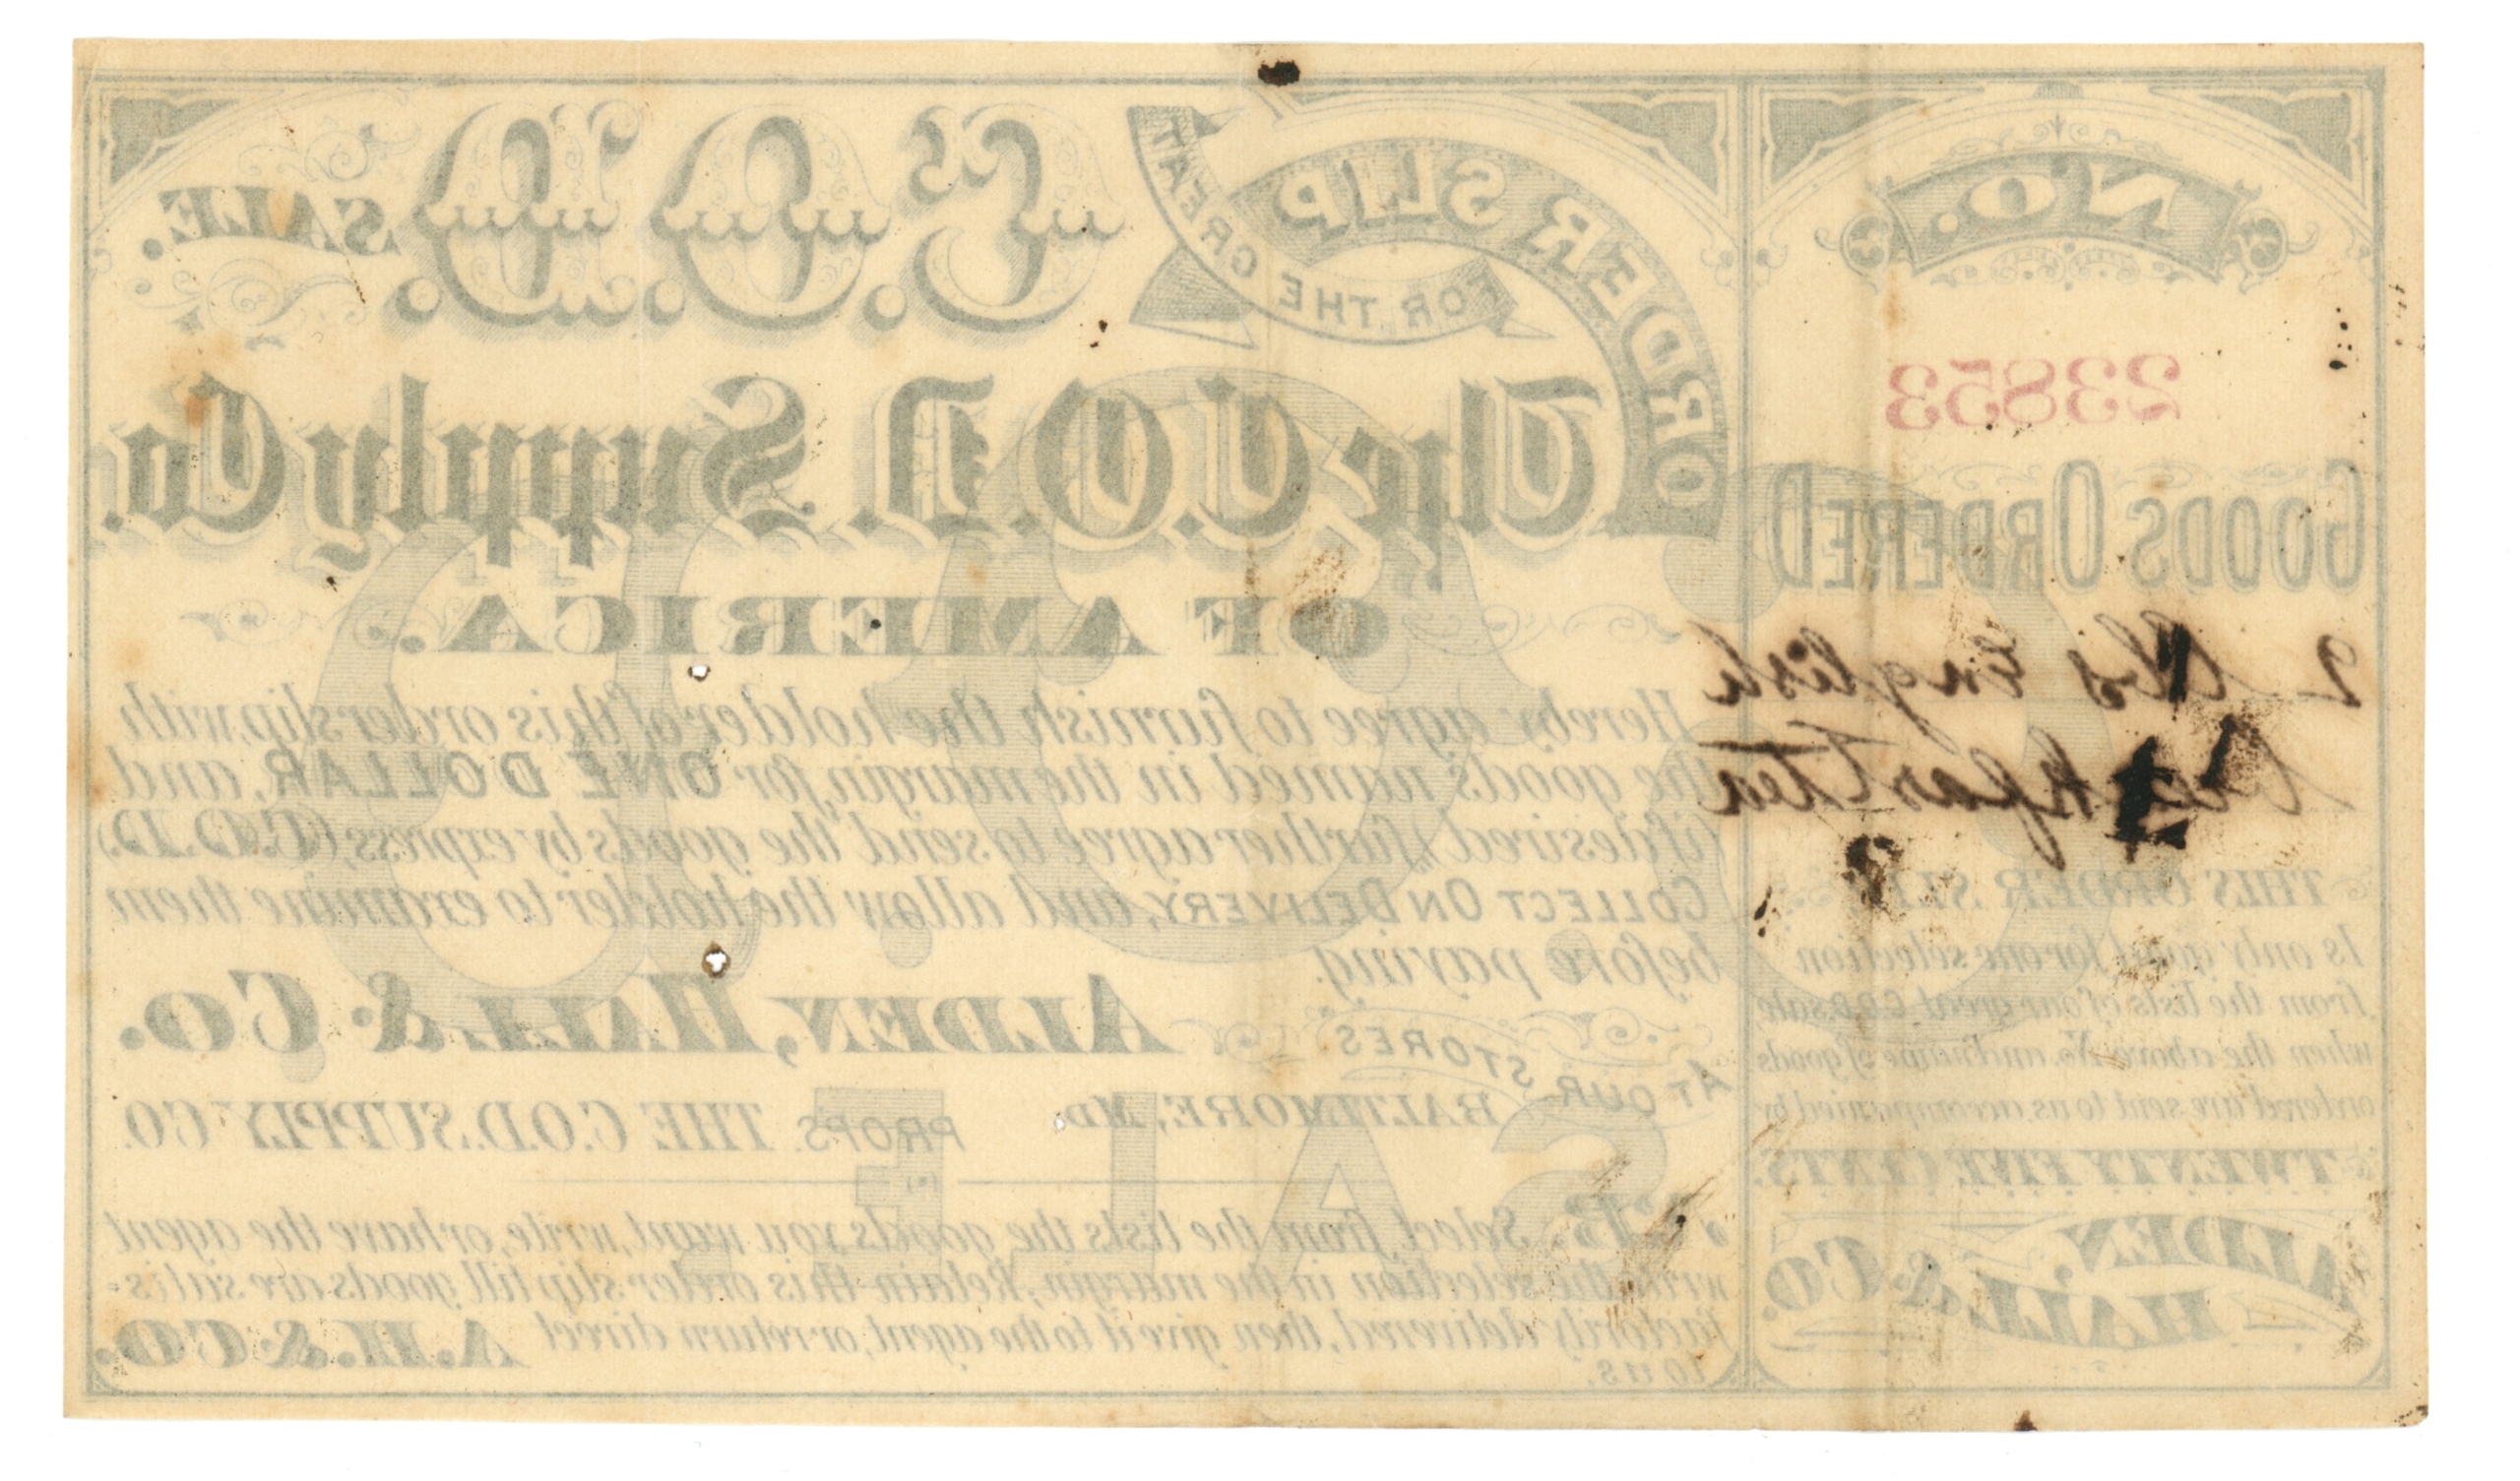 NO.
23853
GOODS ORDERED
2 lbs English
Breakfast Tea
THIS ORDER SLIP
Is only good for one selection
from the lists of our great C.O.D. sale,
when the above No. and name of goods
ordered are sent to us accompanied by
TWENTY FIVE CENTS.
ALDEN,
HALL & CO.
ORDER SLIP
FOR THE GREAT
C.O.D.'s SALE.
The C.O.D. Supply Co.
OF AMERICA.
Hereby agree to furnish the holder of this order slip, with
the goods named in the margin, for ONE DOLLAR, and
(if desired,) further agree to send the goods by express, (C.O.D.)
COLLECT ON DELIVERY, and allow the holder to examine them
before paying.
AT OUR STORES
BALTIMORE, MD.
ALDEN, HALL & CO.
PROPS. THE C.O.D. SUPPLY CO.
N.B. Select from the lists the goods you want, write, or have the agent
write the selection in the margin; Retain this order slip till goods are satis-
factorily delivered, then give it to the agent, or return direct
to us.
A.H. & CO.